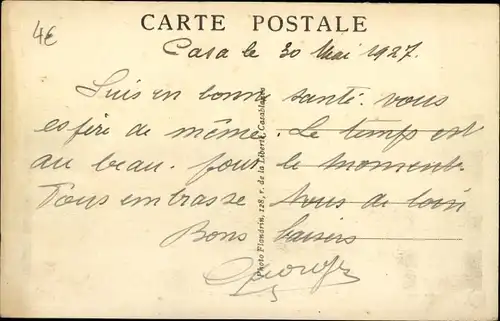 4€
CARTE POSTALE
Casa le 30 Mai 1927.
Suis en bonne santé. vous
espère de même. Le temps est
au beau. pour le moment.
Vous embrasse tous de loin
Bons baisers
Photo Flandrin, 128, r. de la Liberté, Casablanca